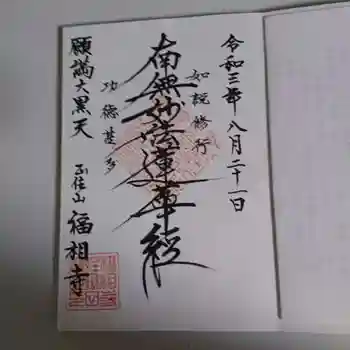 令和三年八月二十一日
如説修行
南無妙法蓮華経
功徳甚多
願満大黒天
正住山 福相寺